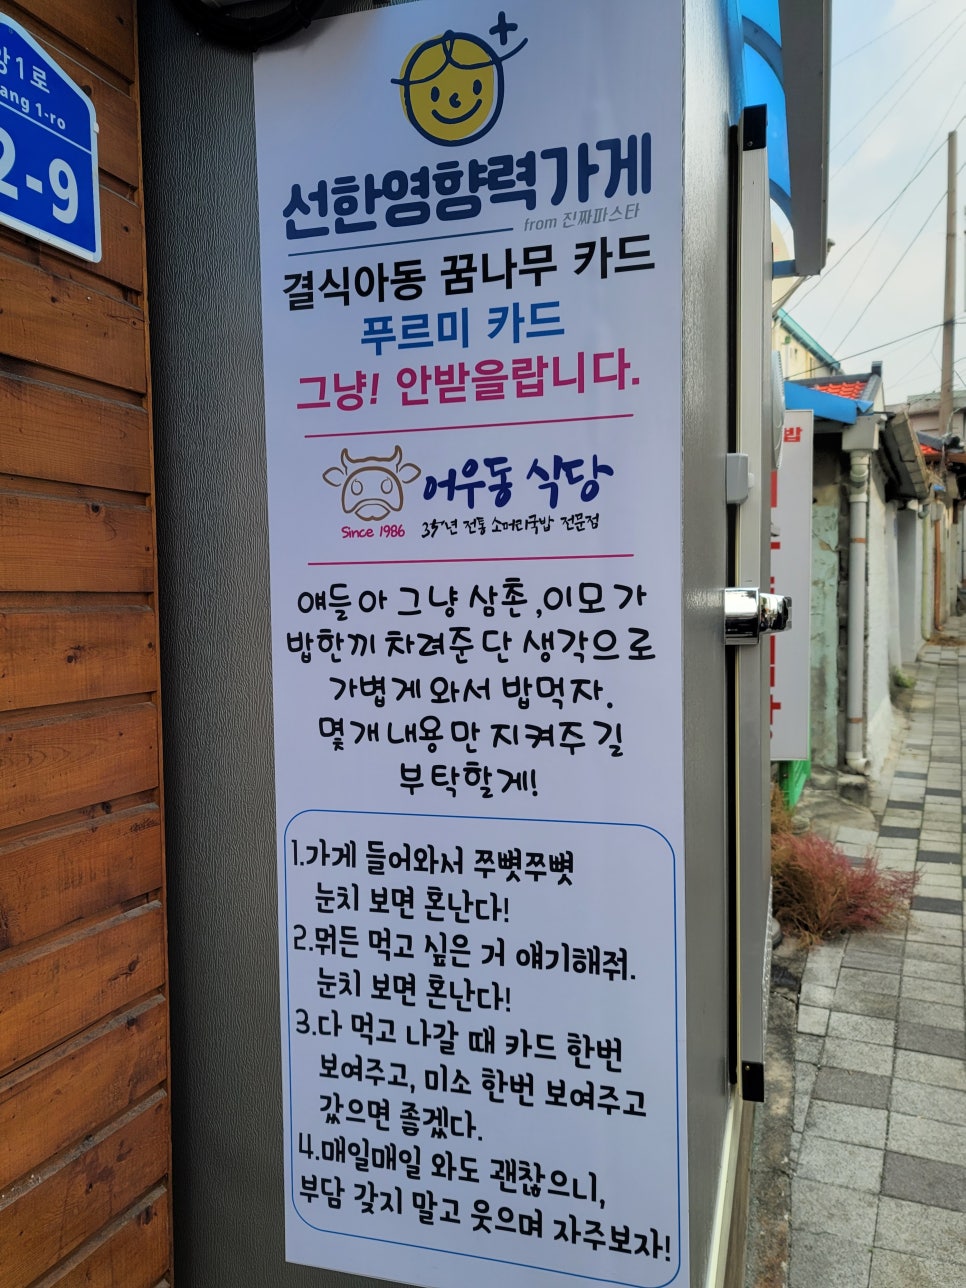 앙1로
ang 1-ro
2-9
선한영향력가게
from 진짜파스타
결식아동 꿈나무 카드
푸르미 카드
그냥! 안받을랍니다.
어우동 식당
Since 1986
35년 전통 소머리국밥 전문점
얘들아 그냥 삼촌,이모가
밥한끼 차려준단 생각으로
가볍게 와서 밥먹자.
몇개 내용만 지켜주길
부탁할게!
1.가게 들어와서 쭈뼛쭈뼛
눈치 보면 혼난다!
2.뭐든 먹고 싶은 거 얘기해줘.
눈치 보면 혼난다!
3.다 먹고 나갈 때 카드 한번
보여주고, 미소 한번 보여주고
갔으면 좋겠다.
4.매일매일 와도 괜찮으니,
부담 갖지 말고 웃으며 자주보자!
밥